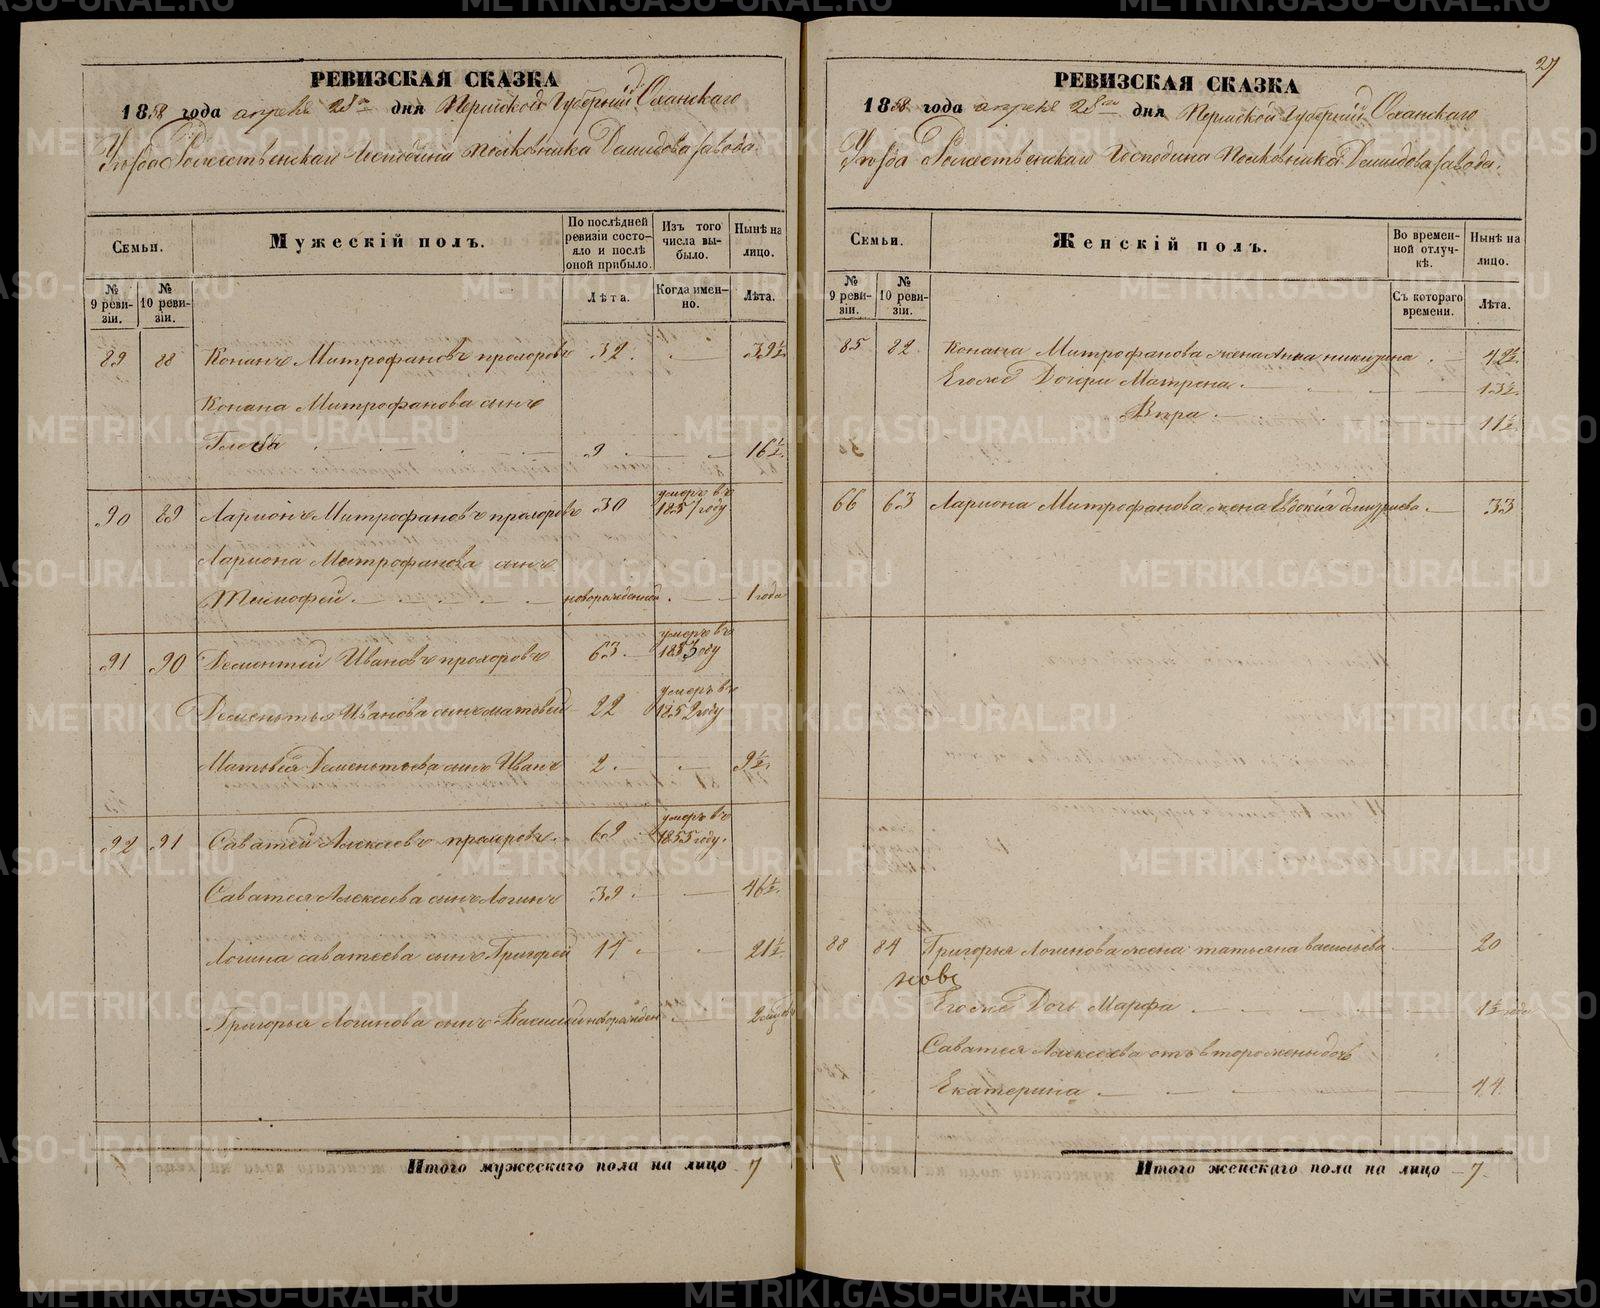 РЕВИЗСКАЯ СКАЗКА
1858 года апреля 28го дня Пермской Губернии Оханскаго
Уезда Рождественскаго Господина Полковника Демидова завода.
Семьи.
Мужескій полъ.
По послѣдней ревизіи состояло и послѣ оной прибыло.
Изъ того числа выбыло.
Нынѣ на лицо.
№ 9 ревизіи.
№ 10 ревизіи.
Лѣта.
Когда именно.
Лѣта.
89 88 Кононъ Митрофановъ прохоровъ 32. 39½
Конана Митрофанова сынъ
Глебъ 9 16½
90 89 Ларионъ Митрофановъ прохоровъ 30 умеръ въ 1857 году
Лариона Митрофанова сынъ
Тимофей новорожденной 1 года
91 90 Дементей Ивановъ прохоровъ 63 умеръ въ 1853 году
Дементья Иванова сынъ матвей 22 умеръ въ 1852 году
Матвея Дементьева сынъ Иванъ 2 9½
92 91 Саватей Алексеевъ прохоровъ 69 умеръ въ 1855 году.
Саватея Алексеева сынъ Логинъ 39 46½
Логина саватеева сынъ Григорей 14 21½
Григорья Логинова сынъ Василей новорожден
Итого мужескаго пола на лицо 7
27
РЕВИЗСКАЯ СКАЗКА
1858 года апреля 28го дня Пермской Губернии Оханскаго
Уезда Рождественскаго Господина Полковника Демидова завода.
Семьи.
Женскій полъ.
Во временной отлучкѣ.
Нынѣ на лицо.
№ 9 ревизіи.
№ 10 ревизіи.
Съ котораго времени.
Лѣта.
85 82 Конана Митрофанова жена Анна 42½
Егоже Дочери Матрена 13½
Вера 11½
66 63 Лариона Митрофанова жена Евдокия 33
88 84 Григорья Логинова жена татьяна васильева 20
нов
Егоже Дочь Марфа 1½ года
Саватея Алексеева отъ второй жены дочь
Екатерина 44
Итого женскаго пола на лицо 7
METRIKI.GASO-URAL.RU